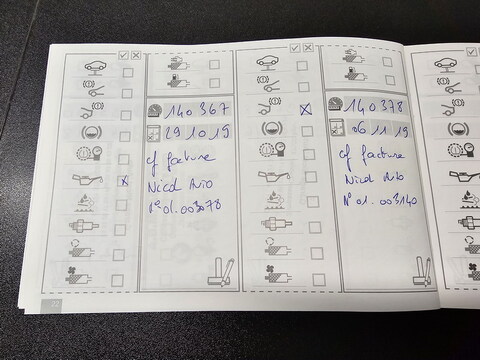 140 367
29 10 19
cf facture
Nicol Auto
N° 01-003078
140 378
06 11 19
cf facture
Nicol Auto
N° 01-003140